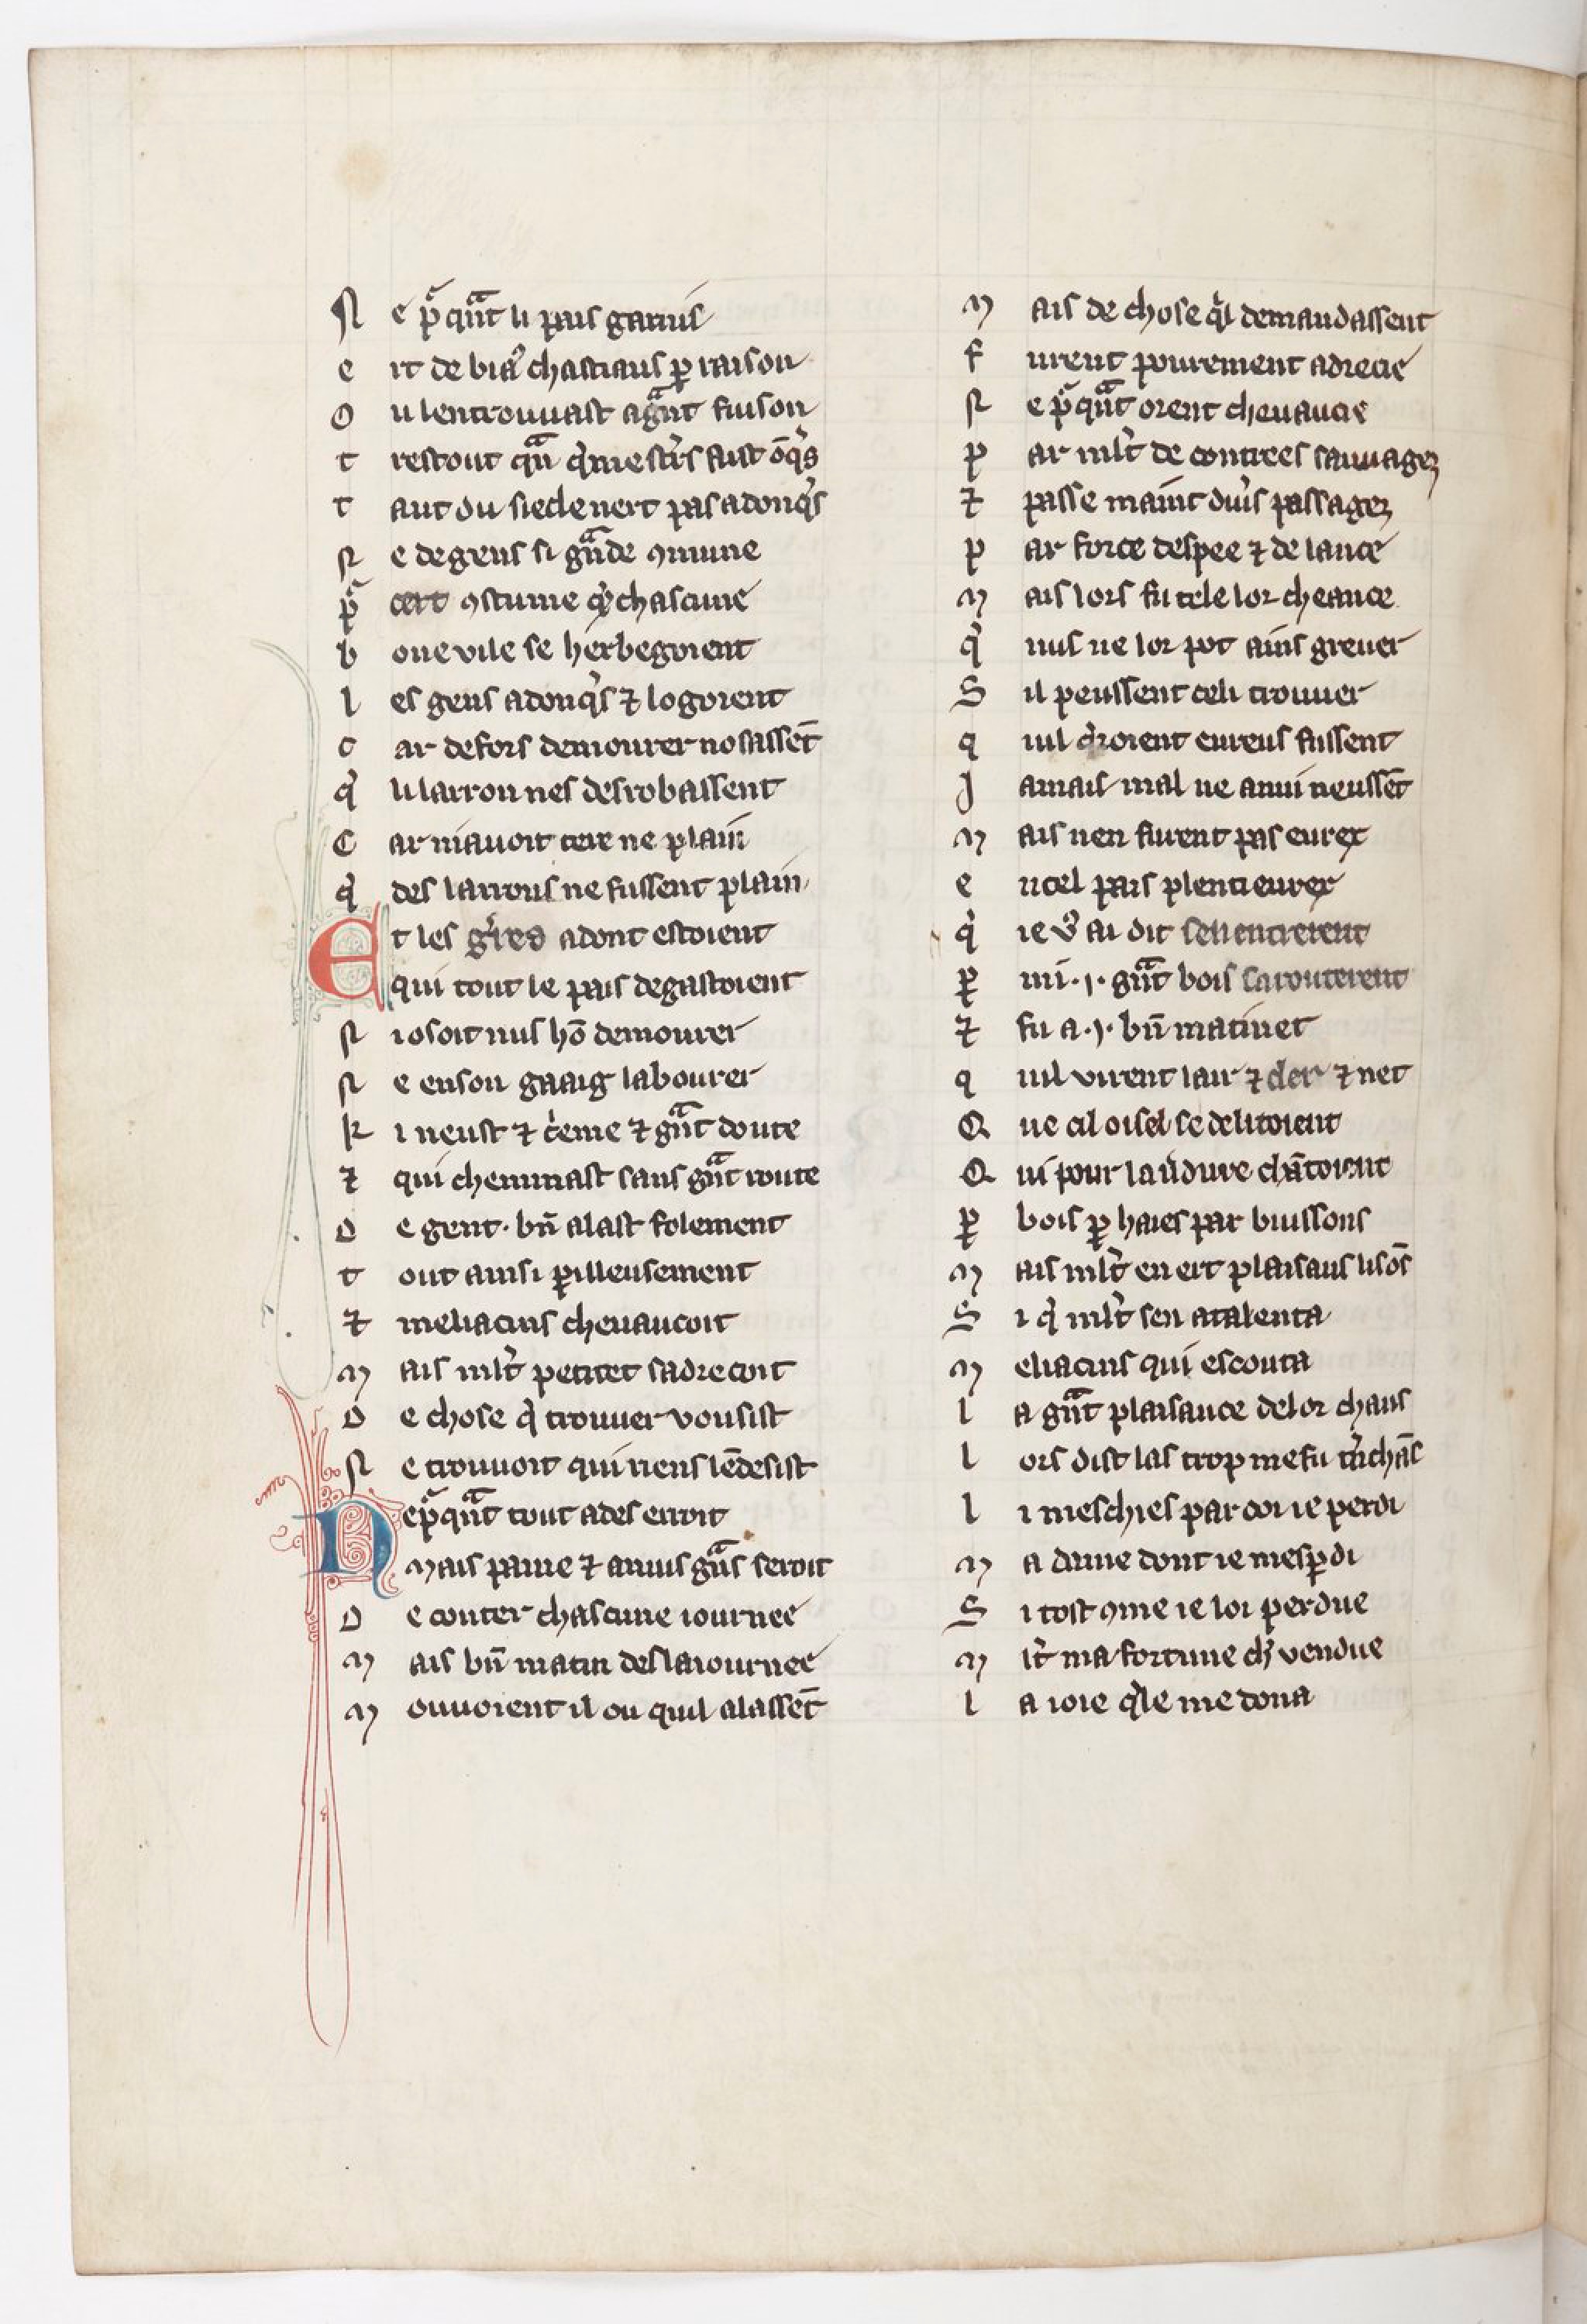 N e pͣ qͣnt li pais garnis
e rt de biaͬ chastiaus ꝑ raison
O u len trouuast a gͣnt fuison
t restout qͣn qͥ mestˀs fust õqˀs
t ant du siecle nert pas adonqˀs
N e de gens si gͣnde ꝯmune
pͣ cert ꝯstume qͥ chascune
b one vile se herbegoient
l es gens adonqˀs ⁊ logoient
c ar defors demourer nosassẽt
qͥ li larron nes desrobassent
C ar ni auoit tere ne plain
qͥ des larrons ne fussent plain
Et les gˀres adont estoient
qui tout le pais degastoient
N i osoit nus hõ demourer
N e en son gaaig labourer
K i neust ⁊ cˀeme ⁊ gͣnt doute
⁊ qui cheminast sans gͣnt route
D e gent. bñ alast folement
t out ainsi ꝑilleusement
⁊ meliacins cheuaucoit
M ais mlˀt petitet sadrecoit
D e chose qͥ trouuer vousist
N e trouuoit qui riens lẽ desist
Ne pͣ qͣnt tout ades erroit
Mais paine ⁊ anuis gͣns seroit
D e conter chascune iournee
M ais bñ matin des laiournee
M ouuoient il ou quil alassẽt
M ais de chose qˀl demandassent
f urent pourement adrecie
N e pͣ qͣnt orent cheuaucie
p ar mlˀt de contrees sauuagez
⁊ passe maint diuˀs passagez
p ar force despee ⁊ de lance
M ais lors fu tele lor cheance
qͥ nus ne lor pot ains greuer
S il peussent celi trouuer
q uil qˀroient eureus fussent
J amais mal ne anui neussẽt
M ais nen furent pas eurex
e n cel pais plentieurex
qͥ ie vˀ ai dit sen entrerent
ꝑ mi .j. gͣnt bois sarouterent
⁊ fu a .j. bñ matinet
q uil virent lair ⁊ cler ⁊ net
Q ue cil oisel se delitoient
Q ui pour la vˀdure chãtoient
ꝑ bois ꝑ haies par buissons
M ais mlˀt en ert plaisans li sõs
S i qͥ mlˀt sen atalenta
M eliacins qui escouta
l a gͣnt plaisance de lor chans
l ors dist las trop me fu trˀchãs
l i meschies par coi ie perdi
M a dame dont ie mesꝑdi
S i tost ꝯme ie loi perdue
M lˀt ma fortune chˀ vendue
l a ioie qˀle me dona